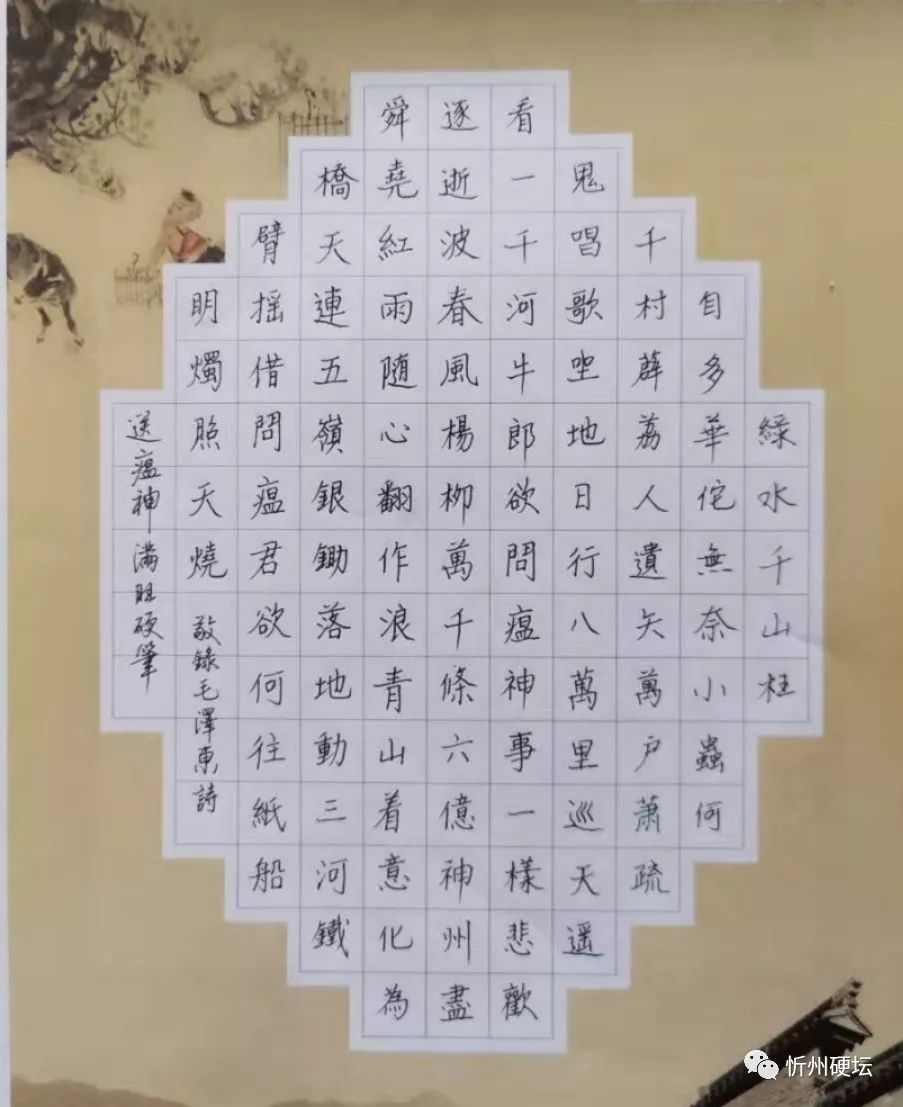 緑水千山枉
自多華佗無奈小蟲何
千村薜荔人遺矢萬户蕭疏
鬼唱歌坐地日行八萬里巡天遥
看一千河牛郎欲問瘟神事一樣悲歡
逐逝波春風楊柳萬千條六億神州盡
舜堯紅雨随心翻作浪青山着意化為
橋天連五嶺銀鋤落地動三河鐵
臂摇借問瘟君欲何往紙船
明燭照天燒 敬錄毛澤東詩
送瘟神 滿旺硬筆
忻州硬坛